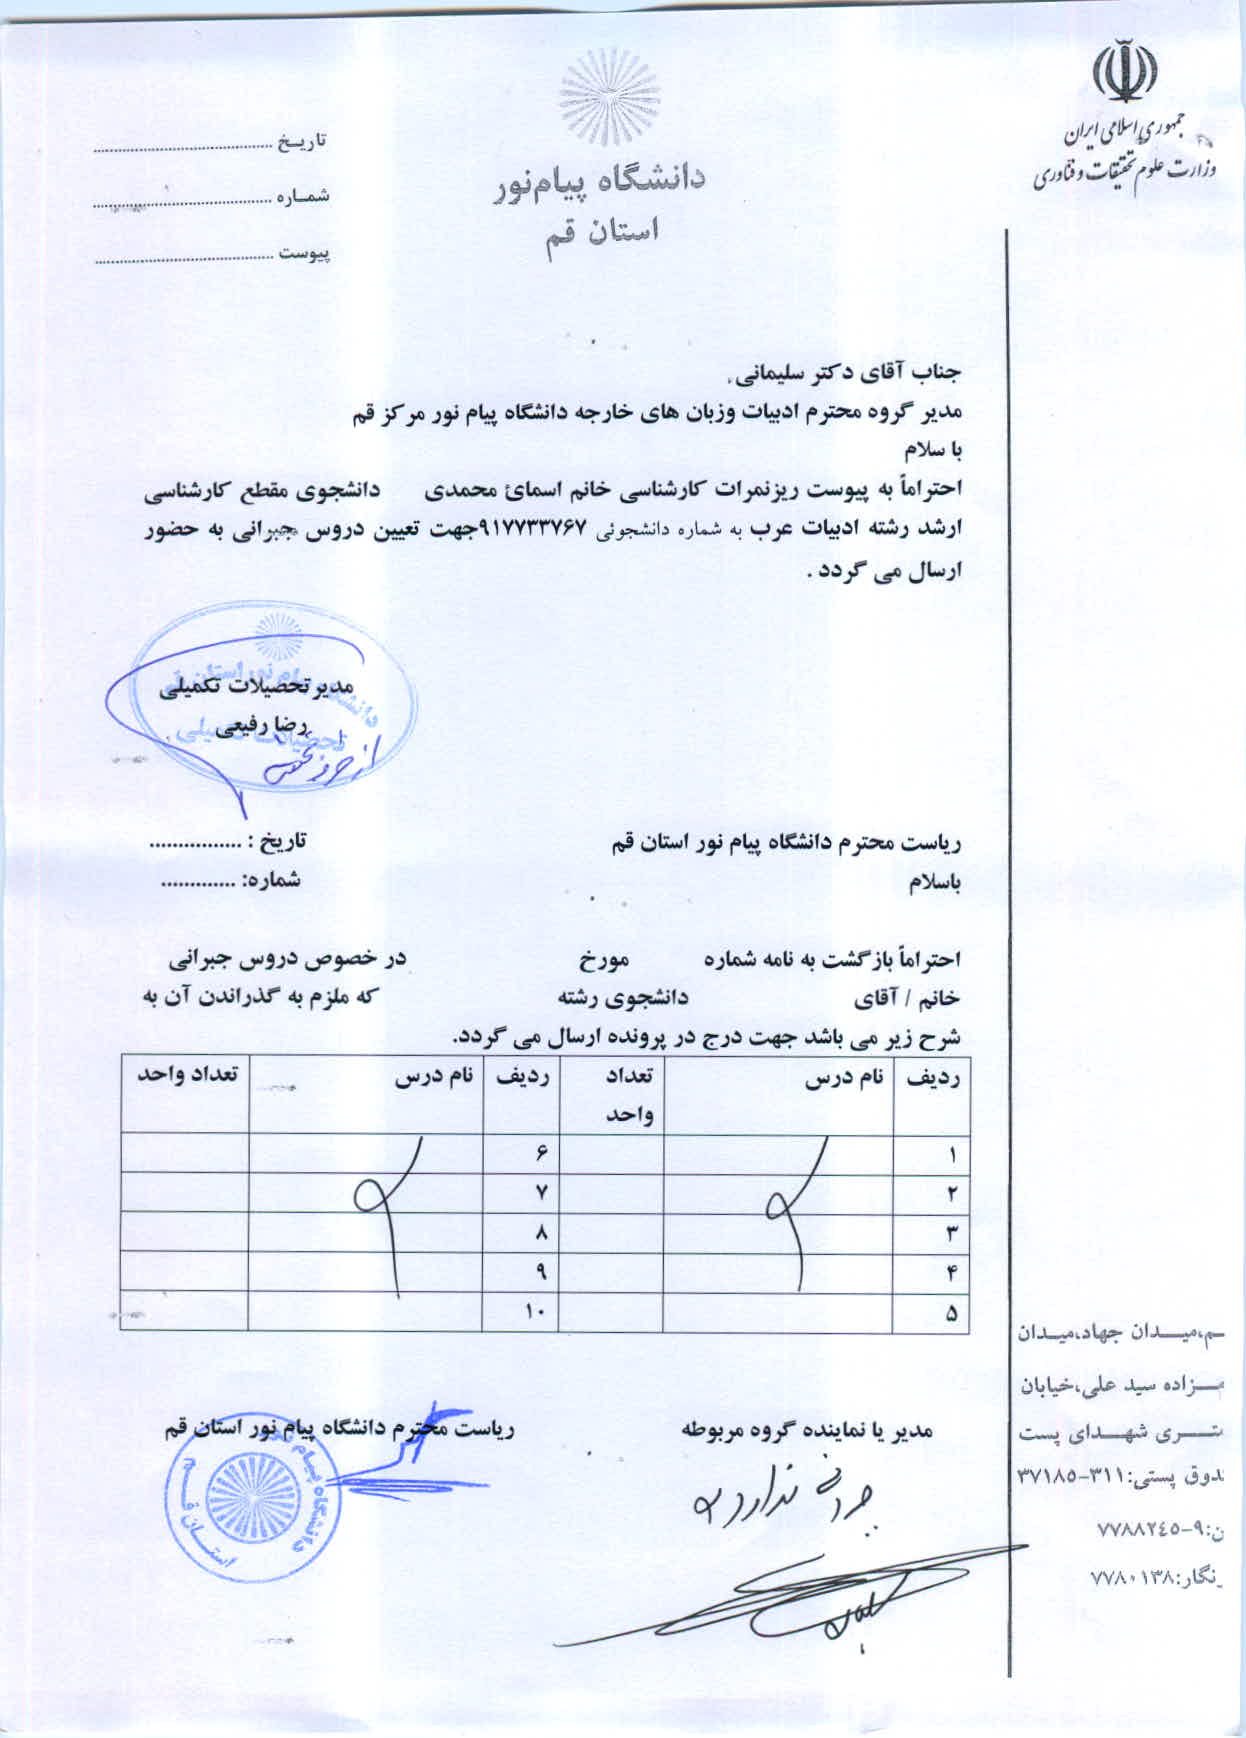 جمهوری اسلامی ایران
وزارت علوم تحقیقات و فناوری
دانشگاه پیام‌نور
استان قم
تاریـخ ............................................
شمـاره ............................................
پیوست ............................................
جناب آقای دکتر سلیمانی
مدیر گروه محترم ادبیات وزبان های خارجه دانشگاه پیام نور مرکز قم
با سلام
احتراماً به پیوست ریزنمرات کارشناسی خانم اسمائ محمدی دانشجوی مقطع کارشناسی
ارشد رشته ادبیات عرب به شماره دانشجوئی ۹۱۷۷۳۳۷۶۷جهت تعیین دروس جبرانی به حضور
ارسال می گردد .
دانشگاه پیام نور استان قم
تحصیلات تکمیلی
مدیر تحصیلات تکمیلی
رضا رفیعی
از طرف
ریاست محترم دانشگاه پیام نور استان قم
تاریخ : ................
باسلام
شماره: .............
احتراماً بازگشت به نامه شماره مورخ در خصوص دروس جبرانی
خانم / آقای دانشجوی رشته که ملزم به گذراندن آن به
شرح زیر می باشد جهت درج در پرونده ارسال می گردد.
ردیف نام درس تعداد واحد ردیف نام درس تعداد واحد
۱ ۶
۲ ۷
۳ ۸
۴ ۹
۵ ۱۰
مدیر یا نماینده گروه مربوطه
ریاست محترم دانشگاه پیام نور استان قم
ندارد
دانشگاه پیام نور
استـان قـم
ـم،میـــدان جهاد،میـدان
ـزاده سید علی،خیابان
ـری شهـدای پست
ـدوق پستی:۳۱۱-۳۷۱۸۵
ن:۹-۷۷۸۸۲۴۵
ـنگار:۷۷۸۰۱۳۸